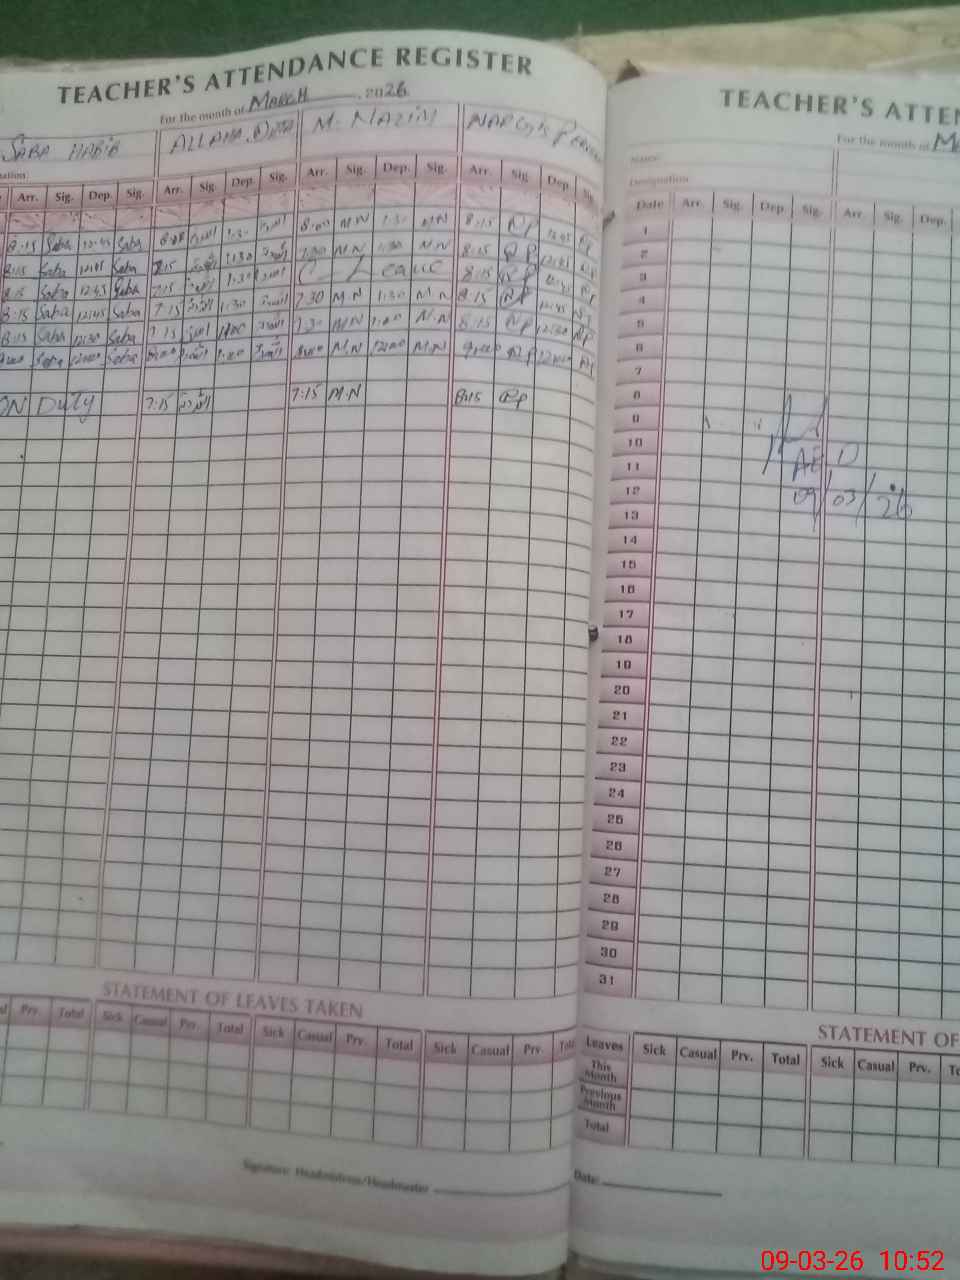 TEACHER'S ATTENDANCE REGISTER
For the month of March, 2026
SABA HABIB ALLAHA. DITTA M. NAZIM NARGIS PERVEEN
Arr. Sig. Dep. Sig. Arr. Sig. Dep. Sig. Arr. Sig. Dep. Sig. Arr. Sig. Dep. Sig.
8:15 Saba 12:45 Saba 1:30 8:00 M.N 1:30 M.N 8:15 NP 12:45 NP
8:15 Saba 12:45 Saba 7:15 1:30 7:30 M.N 1:30 M.N 8:15 NP 12:45 NP
8:15 Saba 12:45 Saba 7:15 1:30 C-Leave 8:15 NP 12:45 NP
8:15 Saba 12:45 Saba 7:15 1:30 7:30 M.N 1:30 M.N 8:15 NP 12:45 NP
8:15 Saba 12:30 Saba 7:15 7:30 M.N M.N 8:15 NP 12:30 NP
Saba 12:00 Saba 1:00 M.N 12:00 M.N 9:00 NP 12:00 NP
ON DUTY 7:15 7:15 M.N 8:15 NP
STATEMENT OF LEAVES TAKEN
Prv. Total Sick Casual Prv. Total Sick Casual Prv. Total Sick Casual Prv. Total
Signature Headmistress/Headmaster
TEACHER'S ATTEN
For the month of Ma
Name
Designation
Date Arr. Sig. Dep. Sig. Arr. Sig. Dep.
1
2
3
4
5
6
7
8
9
10
11
12
13
14
15
16
17
18
19
20
21
22
23
24
25
26
27
28
29
30
31
AEO
09/03/26
STATEMENT OF
Leaves Sick Casual Prv. Total Sick Casual Prv. To
This Month
Previous Month
Total
Date:
09-03-26 10:52